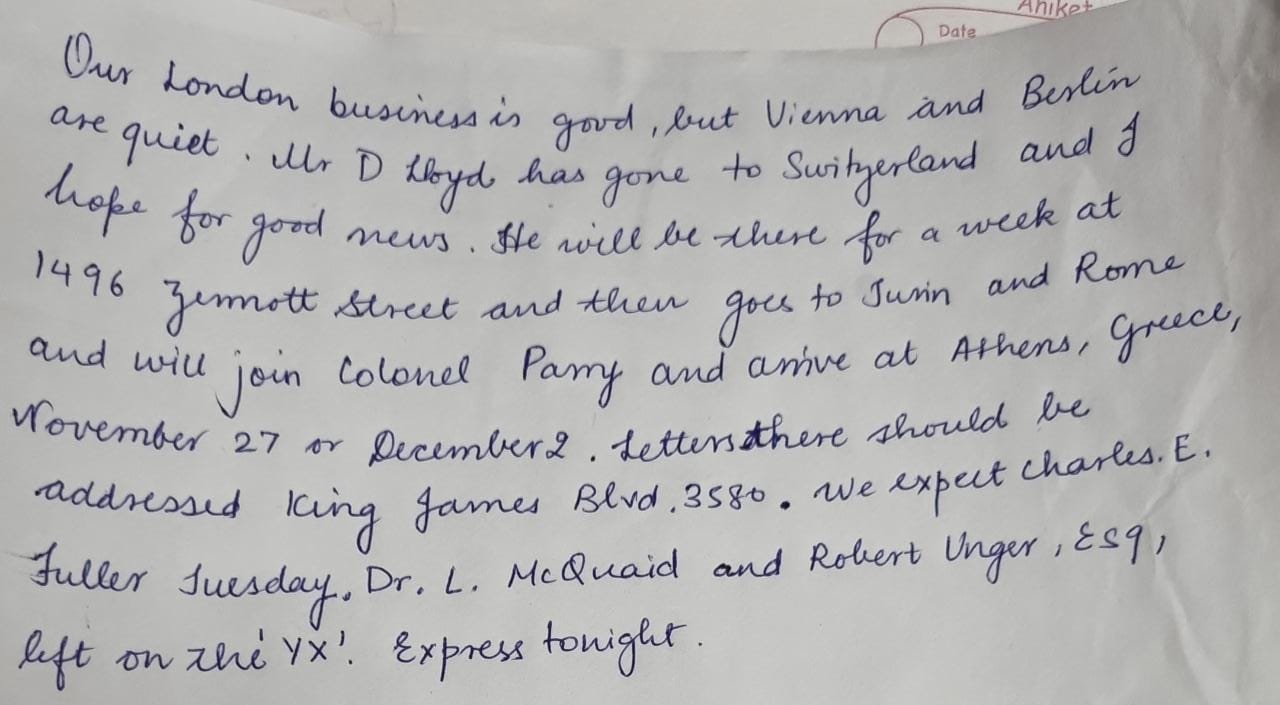 Aniket
Date
Our London business is good, but Vienna and Berlin
are quiet. Mr D Lloyd has gone to Switzerland and I
hope for good news. He will be there for a week at
1496 Zermott Street and then goes to Turin and Rome
and will join Colonel Parry and arrive at Athens, Greece,
November 27 or December 2. Letters there should be
addressed King James Blvd. 3580. We expect Charles. E.
Fuller Tuesday. Dr. L. McQuaid and Robert Unger, Esq,
left on the 'YX'. Express tonight.